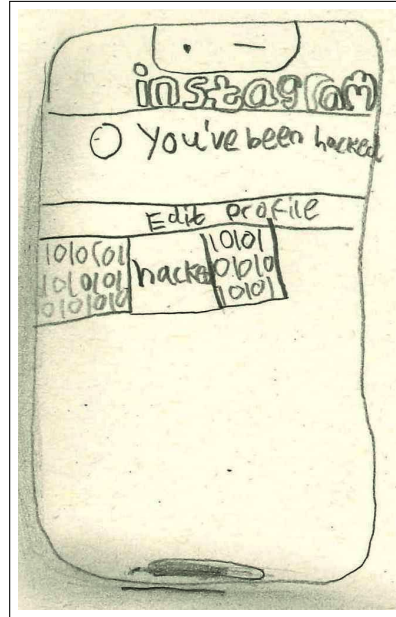 instagram
You've been hacked
Edit profile
1010101 hacked 10101
1010101 01010
0101010 10101